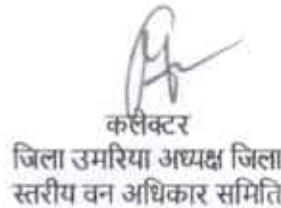 कलेक्टर
जिला उमरिया अध्यक्ष जिला
स्तरीय वन अधिकार समिति